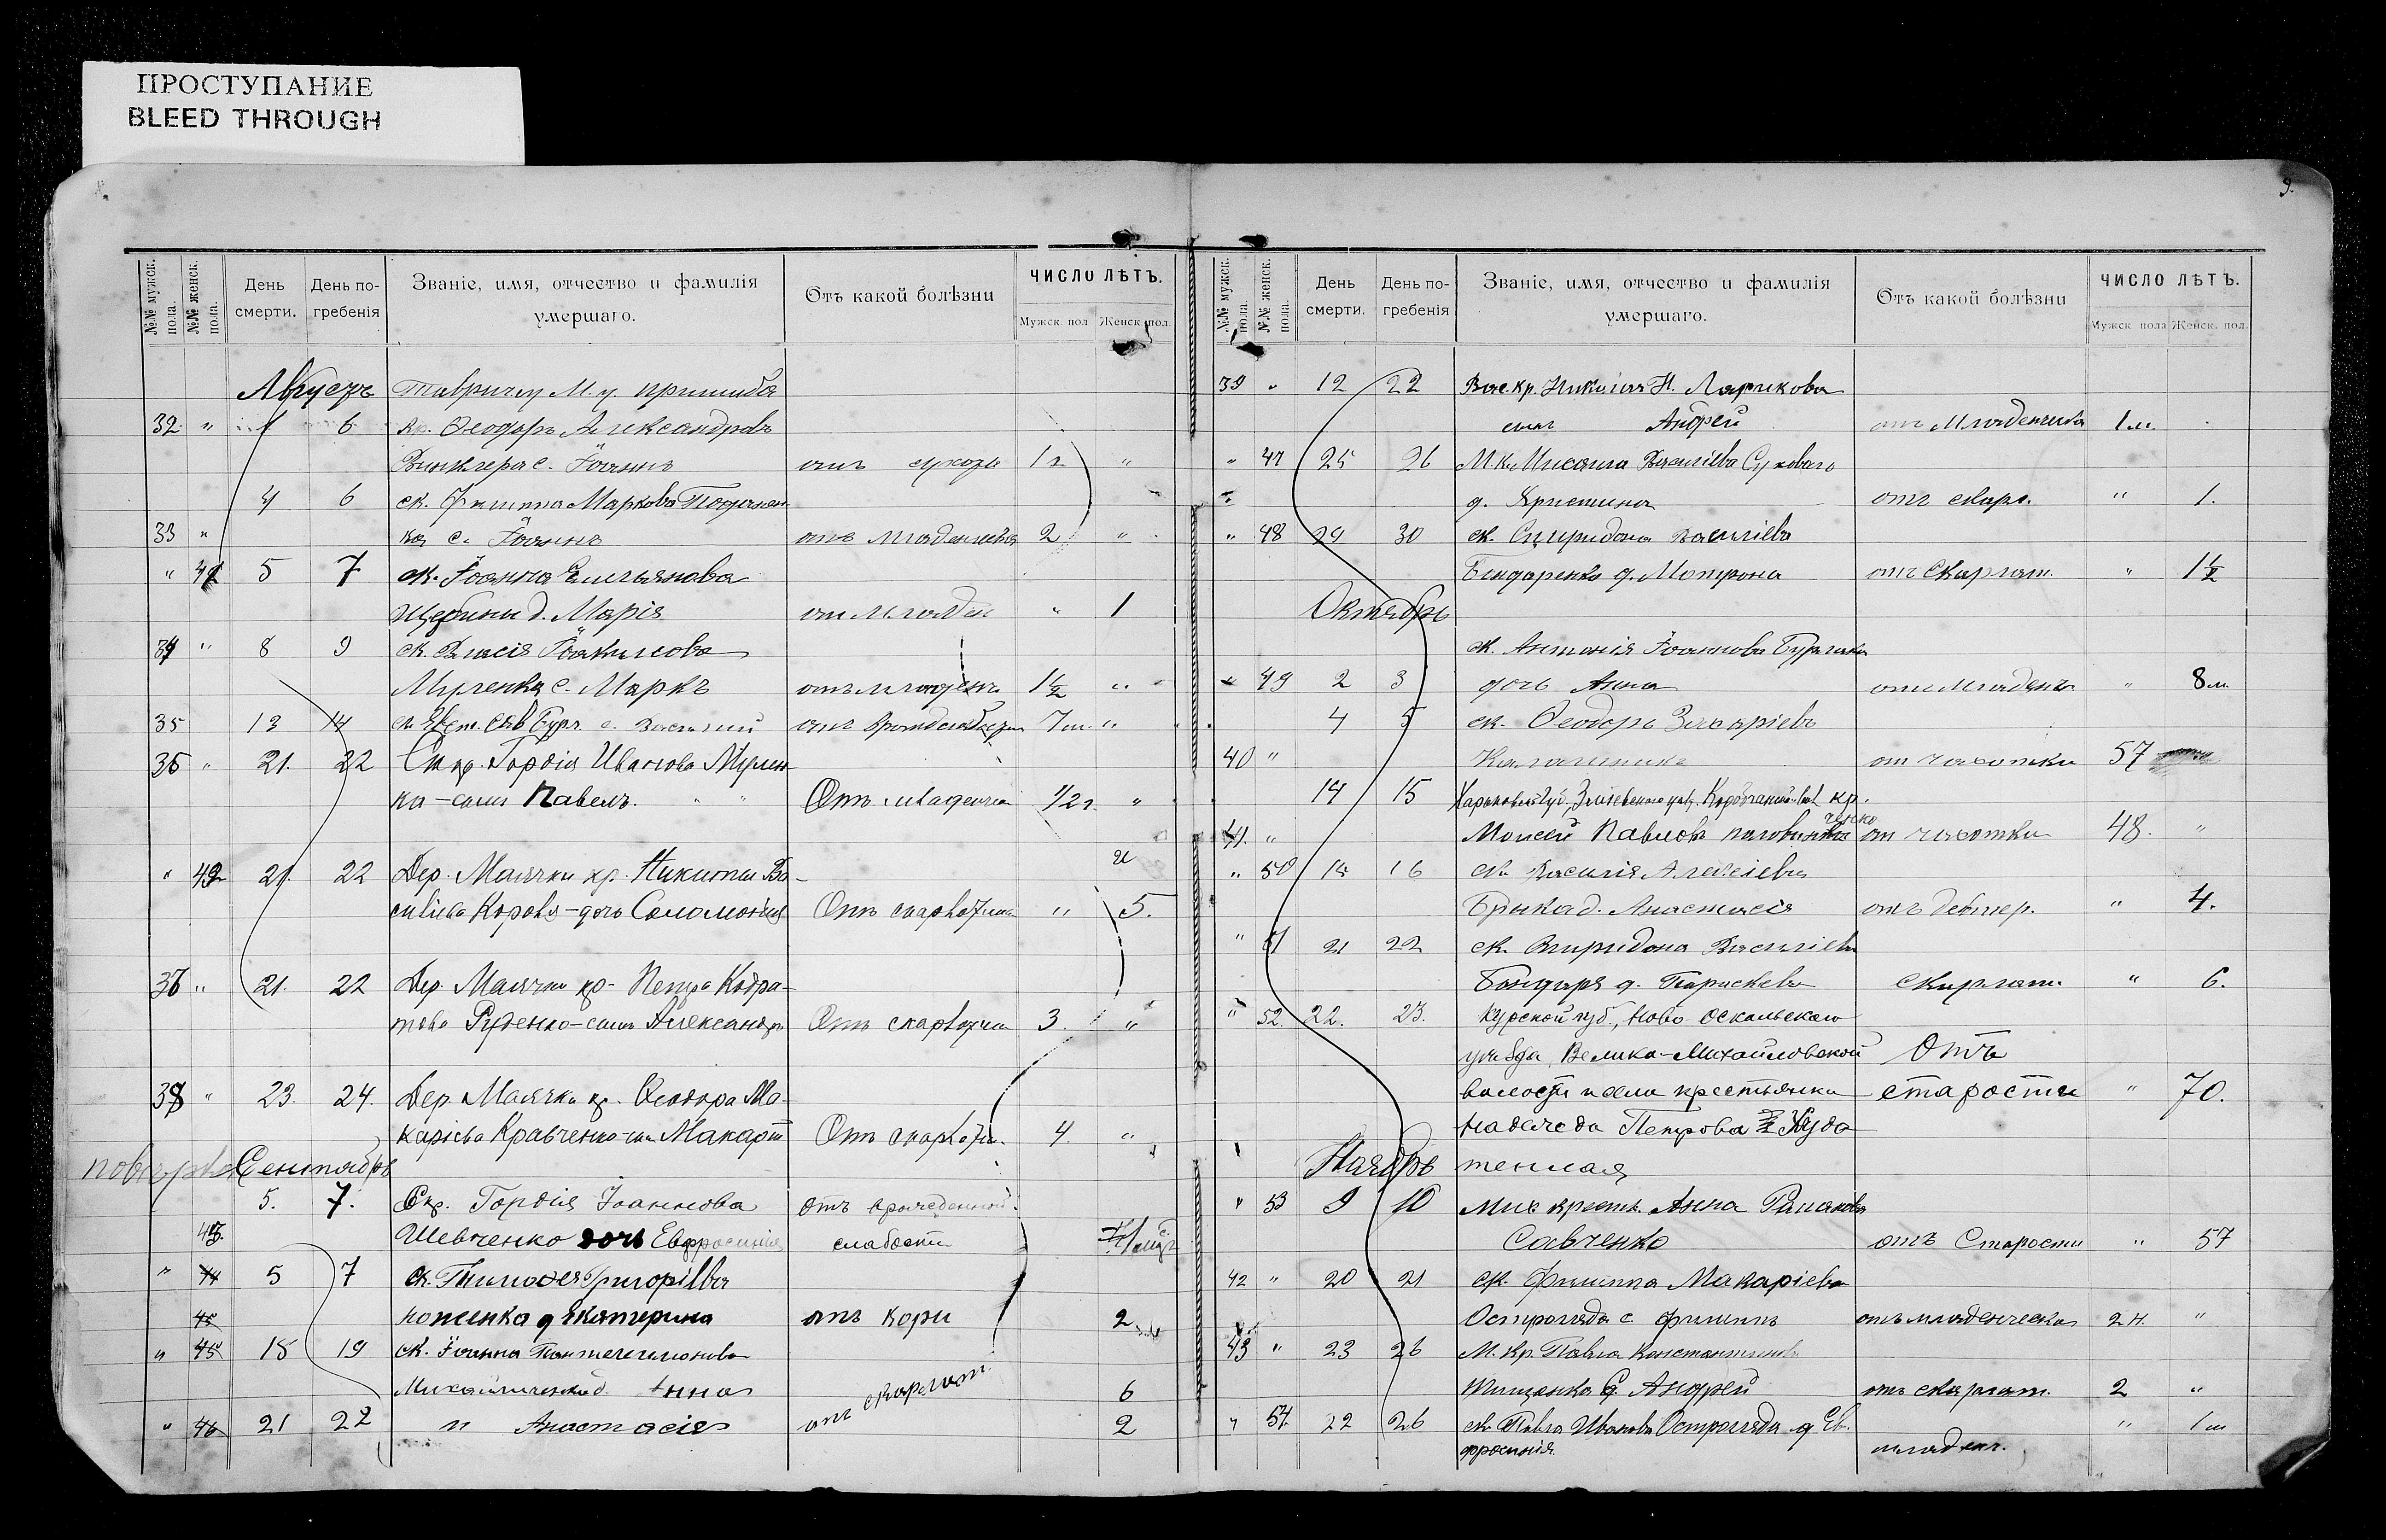 ПРОСТУПАНИЕ
BLEED THROUGH
9.
№№ мужск. пола.
№№ женск. пола.
День смерти.
День погребенія
Званіе, имя, отчество и фамилія
умершаго.
Отъ какой болѣзни
ЧИСЛО ЛѢТЪ.
Мужск. пол Женск. пол.
Августъ
32 " 1 6 кр. Ѳеодоръ Александровъ
с. Іоаннъ отъ 1 "
4 6 ск. Филиппа Маркова
33 " ка с. Іоаннъ отъ младенчества 2 "
" 5 7 ск. Іоанна Емельянова
Щербины д. Марія от младен " 1
34 " 8 9 ск. Власія Іоакимова
с. Маркъ отъ младенч. 1½ "
35 13 14 с. Василий 7 м. "
36 " 21. 22 Ск кр. Гордія Иванова Мирен-
ка - сынъ Павелъ. Отъ младенч 1/2 г. "
" 42 21. 22 Дер. Маячки кр. Никиты Ва-
силіева Корова - дочь Соломонія Отъ скарлатин " 5.
37 " 21. 22 Дер. Маячки кр. Петра Кодра-
това Руденко - сынъ Александръ Отъ скарлатин 3. "
38 " 23. 24. Дер. Маячки кр. Ѳеодора Ма-
каріева Кравченко - сын Макарій Отъ скарлати. 4. "
Сентябрь
5. 7. Гордія Іоаннова отъ врожденной
43. Шевченко дочь Евфросинія слабости
" 44 5 7 ск. Тимоѳея Григоріева
45 ноженка д Екатерина отъ кори 2
" 45 18 19 ск. Іоанна Пантелеимонова
Михайличенко д. Анна отъ скарлат. 6
" 46 21 22 и Анастасія 2
№№ мужск. пола.
№№ женск. пола.
День смерти.
День погребенія
Званіе, имя, отчество и фамилія
умершаго.
Отъ какой болѣзни
ЧИСЛО ЛѢТЪ.
Мужск пола Женск. пол.
39 " 12 22 кр. Николая Н. Ларикова
сынъ Андрей отъ Младенчества 1 м.
" 47 25 26 М. к. Михаила Василіева Суховаго
д. Христина отъ скарл. " 1.
" 48 29 30 ск. Спиридона Василіева
Бондаренко д. Мотрона отъ скарлат. " 1½
Октябрь
ск. Антонія Іоаннова
49 2 3 дочь Анна отъ младенч " 8 м.
4 5 ск. Ѳеодоръ Захаріевъ
40 " от чахотки 57
14 15 Харьковской губ., Зміевскаго уез. кр.
41. " Моисей Павловъ от чахотки 48. "
" 50 15 16 ск. Василія Алексіева
д. Анастасія отъ дифтер. " 4.
" 51 21 22 ск. Спиридона Василіева
Бондаря д. Параскева скарлат. " 6.
" 52. 22. 23. Курской губ., Ново Оскольскаго
уѣзда, Велико-Михайловской Отъ
волости и села крестьянка старости " 70.
Надежда Петрова Худо-
Ноябрь теплая
" 53 9 10 Мих крестк. Анна Романова
Савченко отъ Старости " 57
42 " 20 21 ск. Филиппа Макаріева
Остролядa с Филиппъ отъ младенческа 2 н. "
43 " 23 26 М. Кр. Павла Константинова
Тищенко С. Андрей отъ скарлат. 2 "
" 54. 22 26 ск. Павла Иванова д Ев- " 1 м
фросинія. младенч.